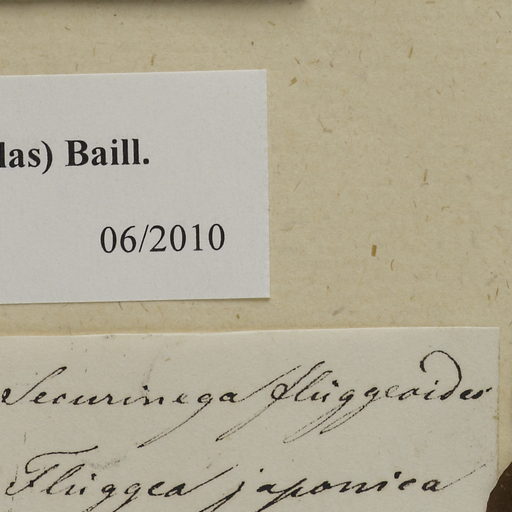 las) Baill.
06/2010
Securinega flüggeoides
Flüggea japonica